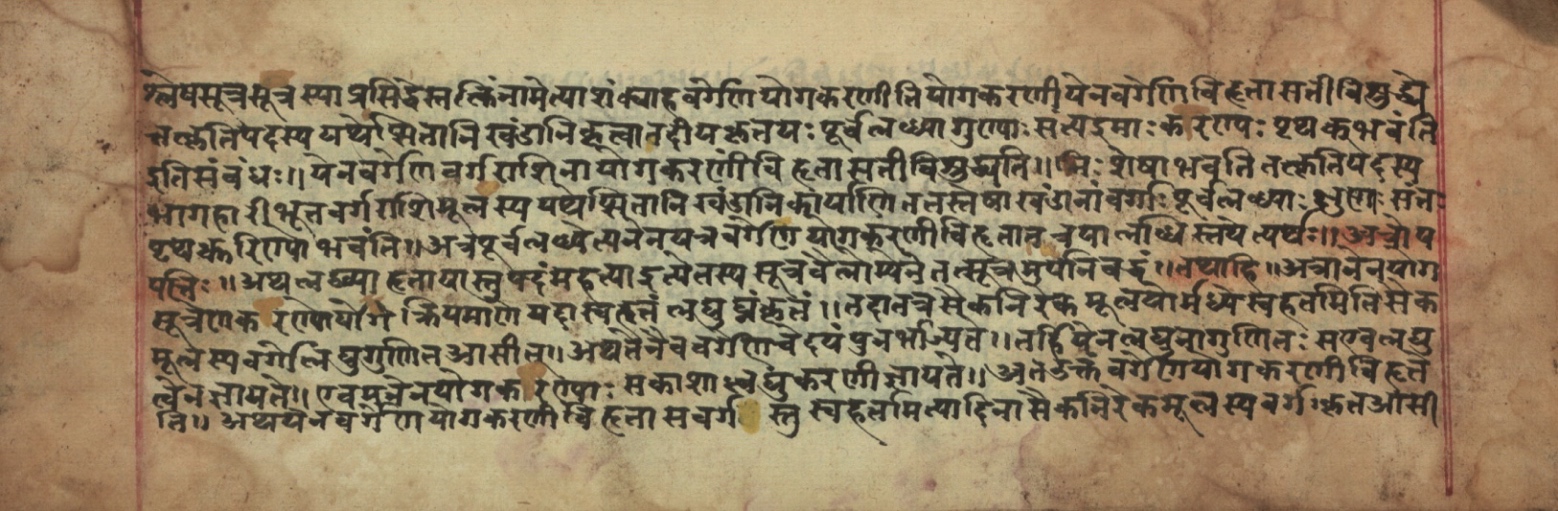 श्लेषसूत्रसूत्रस्याप्रसिद्धेस्तत्किंनामेत्याशंक्याह वर्गेणयोगकरणीतियोगकरणीयेनवर्गेणविहृतासतीविशुद्ध्ये
त्तत्कृतिपदस्ययथेप्सितानिखंडानिकृत्वातदीयकृतयःपूर्वलब्ध्यागुणाःसत्यइमाःकरण्यःपृथकभवंति
इतिसंबंधः॥येनवर्गेणवर्गराशिनायोगकरणीविहृतासतीविशुद्ध्यति॥निःशेषाभवतितत्कृतिपदस्य
भागहारीभूतवर्गराशिमूलस्ययथेप्सितानिखंडानिकार्याणिततस्तेषांखंडानांवर्गाःपूर्वलब्ध्याःक्षुण्णाःसंतः
पृथक्करिण्योभवंति॥अत्रपूर्वलब्ध्येत्यनेनयत्रवर्गेणयोगकरणीविहृतातत्रयालब्धिस्तयेत्यर्थः॥अत्रोप
पत्तिः॥अथलघ्व्याहृतायास्तुपदंमहत्याइत्येतस्यसूत्रवैलोम्येनैतत्सूत्रमुपनिबद्धं॥तथाहि॥अत्रानेनयोग
सूत्रेणकरण्योर्योगेक्रियमाणेयदास्वहृतंलघुघ्नंकृतं॥तदातत्रसैकनिरेकमूलयोर्मध्येस्वहतमितिसैक
मूलस्यवर्गोलघुगुणितआसीत्॥अथतेनैववर्गेणचेदयंपुनर्भाज्यते॥तर्हियेनलघुनागुणितःसएवलघु
त्वेनज्ञायते॥एवमनेनयोगकरण्याःसकाशाल्लघुकरणीज्ञायते॥अतउक्तंवर्गेणयोगकरणीविहृते
ति॥अथयेनवर्गेणयोगकरणीविहृतासवर्गस्तुस्वहतमित्यादिनासैकनिरेकमूलस्यवर्गःकृतआसी